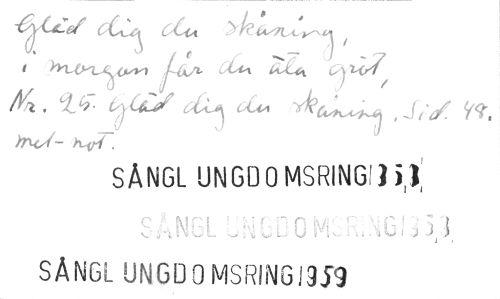 Gläd dig du skåning,
i morgon får du äta gröt,
Nr. 25. Gläd dig du skåning. Sid. 48.
mel-not.
SÅNGL UNGDOMSRING 1353
SÅNGL UNGDOMSRING 1953
SÅNGL UNGDOMSRING 1959